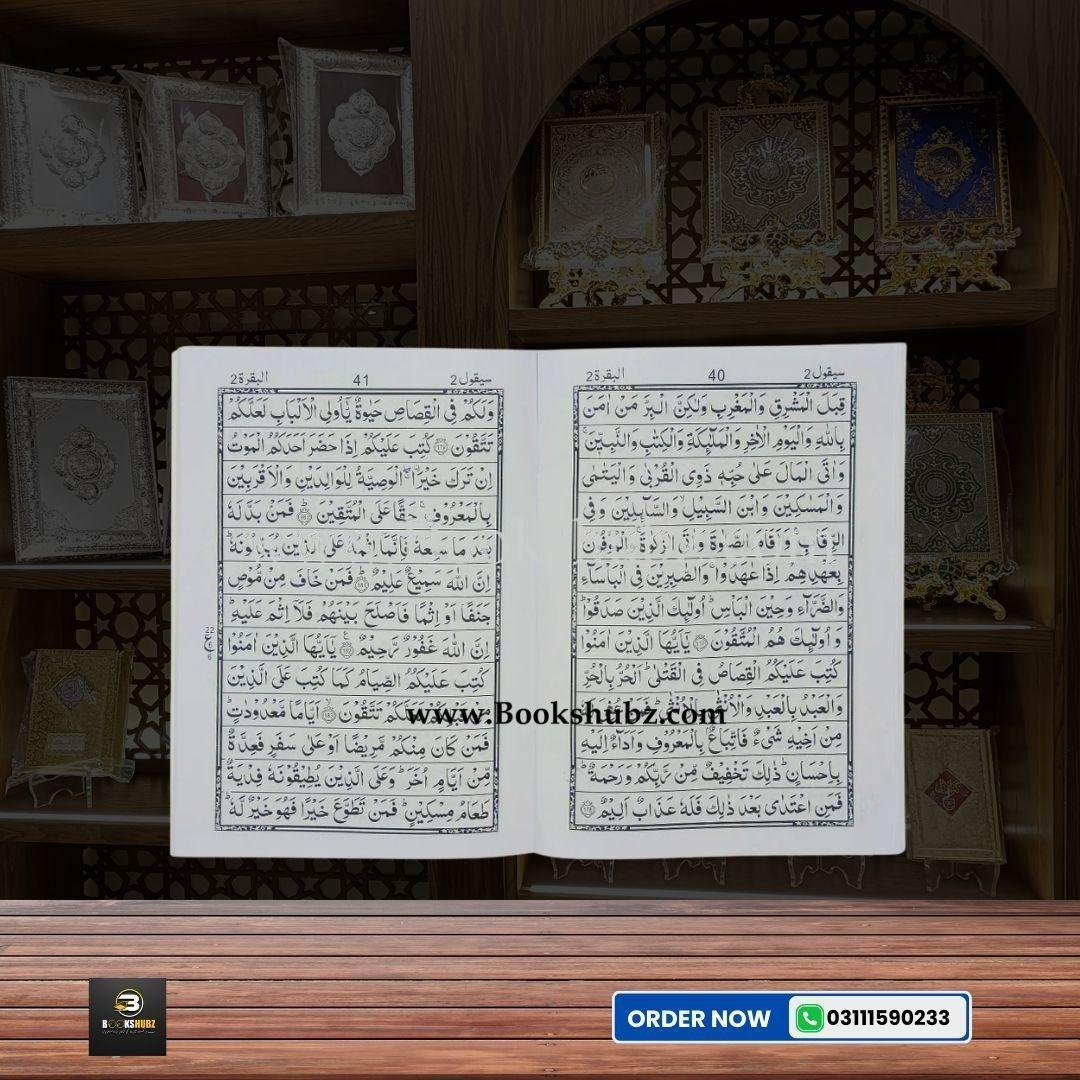 سيقول 2
40
البقرة 2
قِبَلَ الْمَشْرِقِ وَالْمَغْرِبِ وَلٰكِنَّ الْبِرَّ مَنْ اٰمَنَ
بِاللّٰهِ وَالْيَوْمِ الْاٰخِرِ وَالْمَلٰٓئِكَةِ وَالْكِتٰبِ وَالنَّبِيّٖنَ ۚ
وَاٰتَى الْمَالَ عَلٰى حُبِّهٖ ذَوِى الْقُرْبٰى وَالْيَتٰمٰى
وَالْمَسٰكِيْنَ وَابْنَ السَّبِيْلِ ۙ وَالسَّآئِلِيْنَ وَفِى
الرِّقَابِ ۚ وَاَقَامَ الصَّلٰوةَ وَاٰتَى الزَّكٰوةَ ۚ وَالْمُوْفُوْنَ
بِعَهْدِهِمْ اِذَا عٰهَدُوْا ۚ وَالصّٰبِرِيْنَ فِى الْبَاْسَآءِ
وَالضَّرَّآءِ وَحِيْنَ الْبَاْسِ ؕ اُولٰٓئِكَ الَّذِيْنَ صَدَقُوْا ؕ
وَاُولٰٓئِكَ هُمُ الْمُتَّقُوْنَ ۝ يٰۤاَيُّهَا الَّذِيْنَ اٰمَنُوْا
كُتِبَ عَلَيْكُمُ الْقِصَاصُ فِى الْقَتْلٰى ؕ اَلْحُرُّ بِالْحُرِّ
وَالْعَبْدُ بِالْعَبْدِ وَالْاُنْثٰى بِالْاُنْثٰى
مِنْ اَخِيْهِ شَىْءٌ فَاتِّبَاعٌۢ بِالْمَعْرُوْفِ وَاَدَآءٌ اِلَيْهِ
بِاِحْسَانٍ ؕ ذٰلِكَ تَخْفِيْفٌ مِّنْ رَّبِّكُمْ وَرَحْمَةٌ ؕ
فَمَنِ اعْتَدٰى بَعْدَ ذٰلِكَ فَلَهٗ عَذَابٌ اَلِيْمٌ ۝
سيقول 2
41
البقرة 2
وَلَكُمْ فِى الْقِصَاصِ حَيٰوةٌ يّٰۤاُولِى الْاَلْبَابِ لَعَلَّكُمْ
تَتَّقُوْنَ ۝ كُتِبَ عَلَيْكُمْ اِذَا حَضَرَ اَحَدَكُمُ الْمَوْتُ
اِنْ تَرَكَ خَيْرَا ۖۚ اۨلْوَصِيَّةُ لِلْوَالِدَيْنِ وَالْاَقْرَبِيْنَ
بِالْمَعْرُوْفِ ۚ حَقًّا عَلَى الْمُتَّقِيْنَ ۝ فَمَنْۢ بَدَّلَهٗ
بَعْدَ مَا سَمِعَهٗ فَاِنَّمَاۤ اِثْمُهٗ عَلَى الَّذِيْنَ يُبَدِّلُوْنَهٗ ؕ
اِنَّ اللّٰهَ سَمِيْعٌ عَلِيْمٌ ۝ فَمَنْ خَافَ مِنْ مُّوْصٍ
جَنَفًا اَوْ اِثْمًا فَاَصْلَحَ بَيْنَهُمْ فَلَاۤ اِثْمَ عَلَيْهِ ؕ
اِنَّ اللّٰهَ غَفُوْرٌ رَّحِيْمٌ ۝ يٰۤاَيُّهَا الَّذِيْنَ اٰمَنُوْا
كُتِبَ عَلَيْكُمُ الصِّيَامُ كَمَا كُتِبَ عَلَى الَّذِيْنَ
تَتَّقُوْنَ ۝ اَيَّامًا مَّعْدُوْدٰتٍ ؕ
فَمَنْ كَانَ مِنْكُمْ مَّرِيْضًا اَوْ عَلٰى سَفَرٍ فَعِدَّةٌ
مِّنْ اَيَّامٍ اُخَرَ ؕ وَعَلَى الَّذِيْنَ يُطِيْقُوْنَهٗ فِدْيَةٌ
طَعَامُ مِسْكِيْنٍ ؕ فَمَنْ تَطَوَّعَ خَيْرًا فَهُوَ خَيْرٌ لَّهٗ ؕ
www.Bookshubz.com
BOOKSHUBZ
ORDER NOW 03111590233